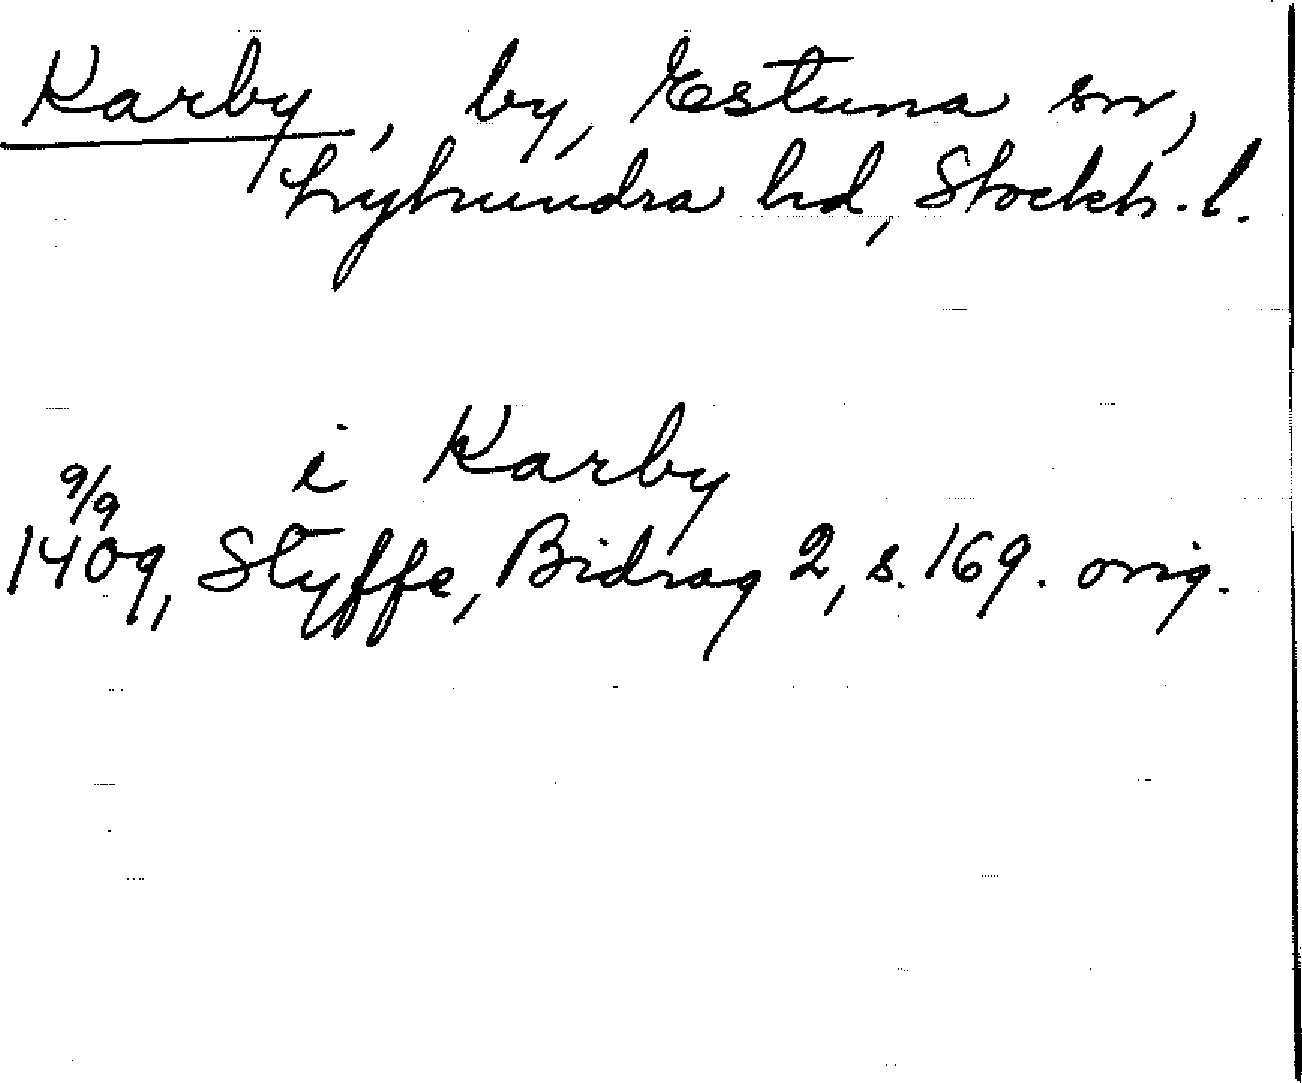 Karby, by, Estuna sn,
Lyhundra hd, Stockh. l.
i Karby
9/9
1409, Styffe, Bidrag 2, s. 169. orig.